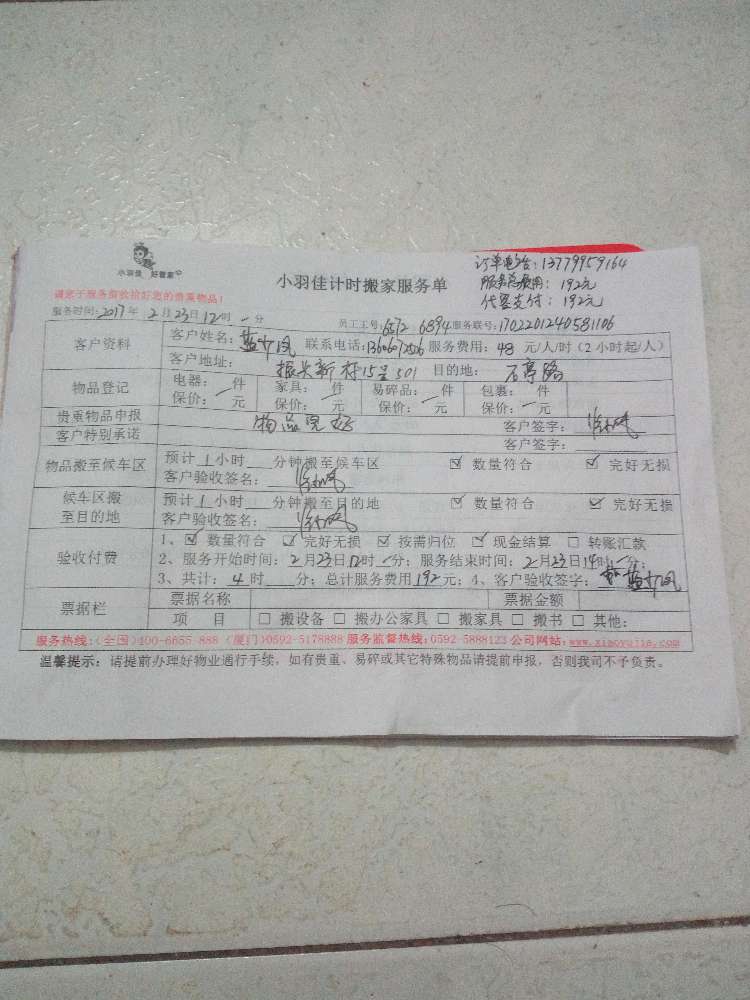 小羽佳 好管家
小羽佳计时搬家服务单
订单电台：13779959164
服务总费用：192元
代客支付：192元
请您于服务前收拾好您的贵重物品！
服务时间：2017年2月23日12时-分 员工工号：6572 6894 服务联号：1702201240581106
客户资料
客户姓名：蓝 凤 联系电话： 服务费用：48元/人/时（2小时起/人）
客户地址：振兴新村15号501 目的地：石亭路
物品登记
电器：-件 家具：-件 易碎品：-件 包裹：-件
保价：-元 保价：-元 保价：-元 保价：-元
贵重物品申报 物品完好 客户签字：
客户特别承诺 客户签字：
物品搬至候车区
预计1小时 分钟搬至候车区 ☑ 数量符合 ☑ 完好无损
客户验收签名：
候车区搬至目的地
预计1小时 分钟搬至目的地 ☑ 数量符合 ☑ 完好无损
客户验收签名：
验收付费
1、☑ 数量符合 ☑ 完好无损 ☑ 按需归位 ☑ 现金结算 □ 转账汇款
2、服务开始时间：2月23日12时-分；服务结束时间：2月23日14时-分；
3、共计：4时 分；总计服务费用192元；4、客户验收签字：
票据栏
票据名称 票据金额
项 目 □ 搬设备 □ 搬办公家具 □ 搬家具 □ 搬书 □ 其他：
服务热线：（全国）400-6655-888（厦门）0592-5178888 服务监督热线：0592-5888123 公司网站：www.xiaoyujia.com
温馨提示：请提前办理好物业通行手续，如有贵重、易碎或其它特殊物品请提前申报，否则我司不予负责。